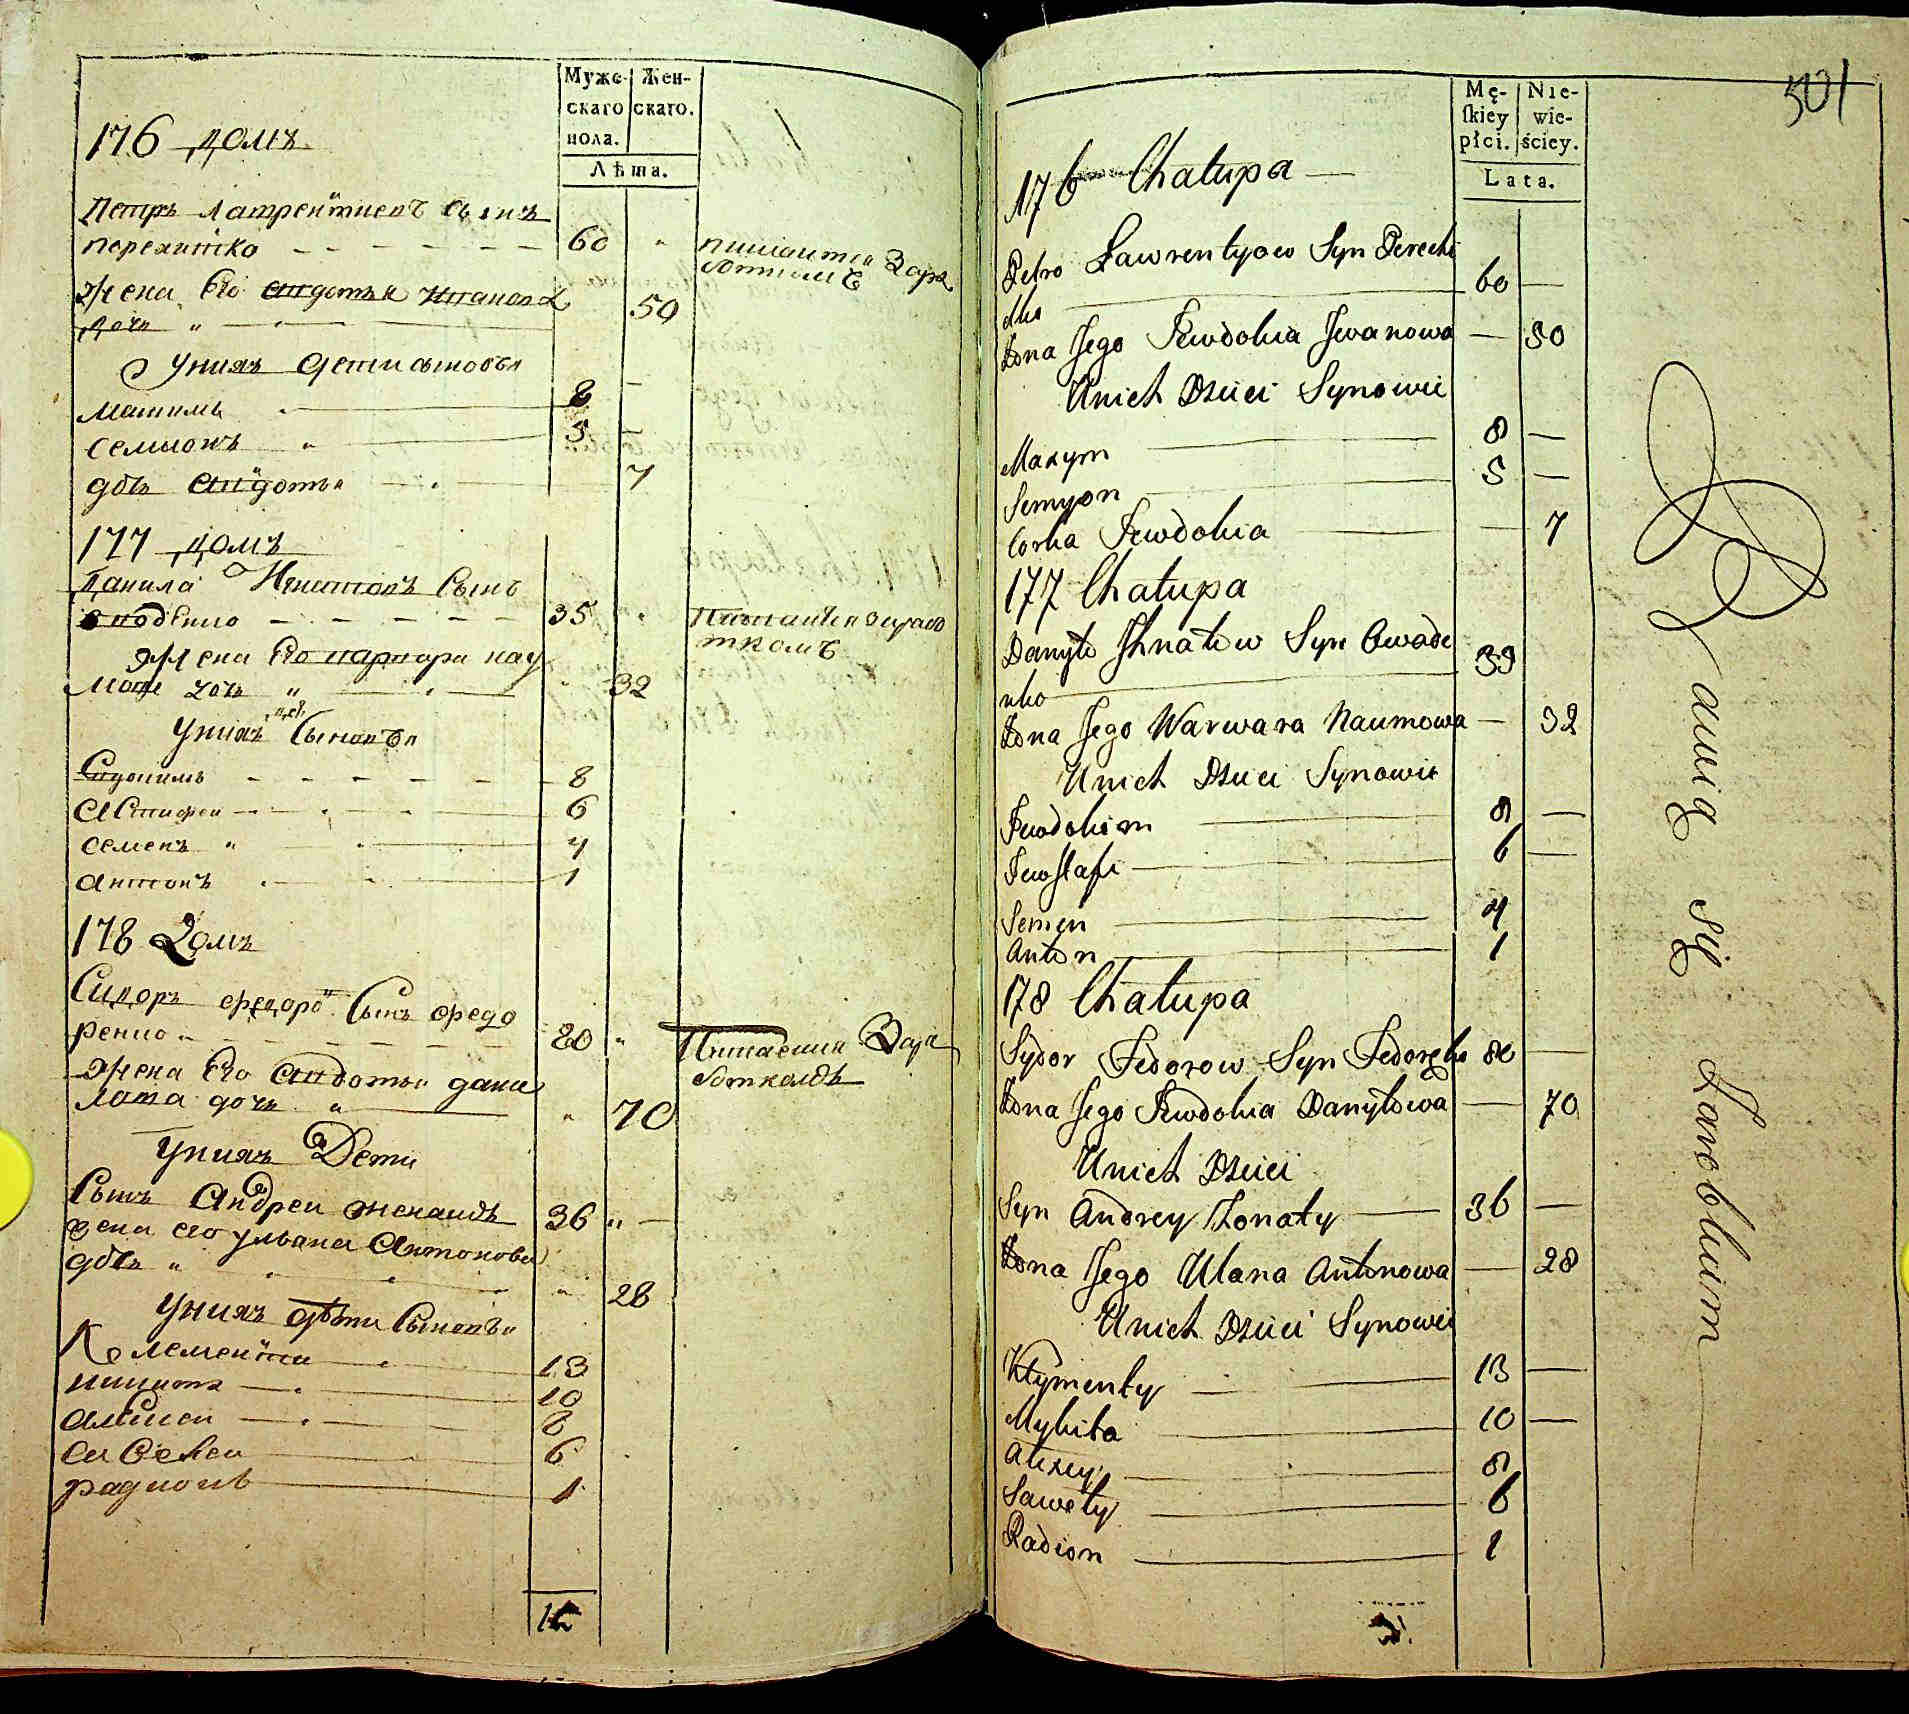 Муже- Жен-
скаго скаго.
пола.
Лѣта.
176 домъ
Петръ Лаврентиевъ сынъ
60
жена Его Авдотья Иванова
дочь 50
Унихъ дети сыновья
Максимъ 8
Семионъ 5
дочь Авдотья 7
177 домъ
Данила Игнатовъ Сынъ
35
Жена Его Варвара Нау
мова дочь 32
Унихъ дет. Сыновья
8
6
Семенъ 4
Антонъ 1
178 Домъ
Сидоръ Федоро Сынъ Федо
ренко 80
жена Его Авдотья Дани
лова дочь 70
Унихъ Дети
Сынъ Андреи женатъ 36
жена его Ульана Антонова
28
Унихъ дѣти Сыновья
Клементии 13
Никита 10
Алексеи 8
Савелеи 6
Радионъ 1
501
Mę- Nie-
skiey wie-
płci. ściey.
Lata.
176 Chałupa
Petro Ławrentyow Syn Perechi
dko 60
Żona Jego Jewdokia Jwanowa 50
Unich Dzieci Synowie
Maxym 8
Semyon 5
Corka Jewdokia 7
177 Chałupa
Danyło Jhnatow Syn Owade
nko 35
Żona Jego Warwara Naumowa 32
Unich Dzieci Synowie
Jewdokim 8
Jewstafi 6
Semen 4
Anton 1
178 Chałupa
Sydor Fedorow Syn Fedorenko 80
Żona Jego Jewdokia Danyłowa 70
Unich Dzieci
Syn Andrey Żonaty 36
Żona Jego Ulana Antonowa 28
Unich Dzieci Synowie
Kłymenty 13
Mykita 10
Alexey 8
Sawety 6
Radion 1
Bawią się Zarobkiem